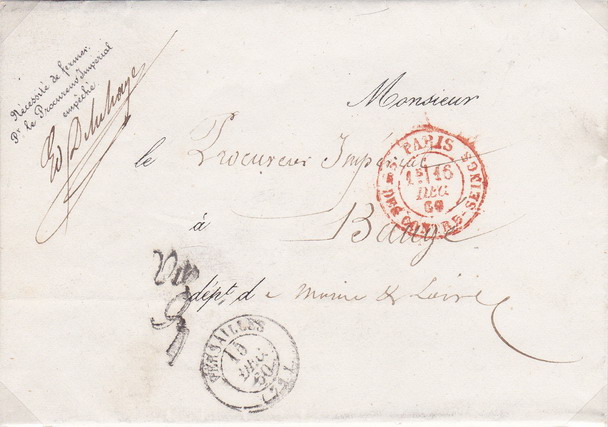 Nécessité de fermer.
Pr. le Procureur Impérial
empêché
Ed Delahaye
Monsieur
le Procureur Impérial
à Baugé
dépt. de Maine & Loire
PARIS
16
DEC.
60
VERSAILLES
15
DEC.
60